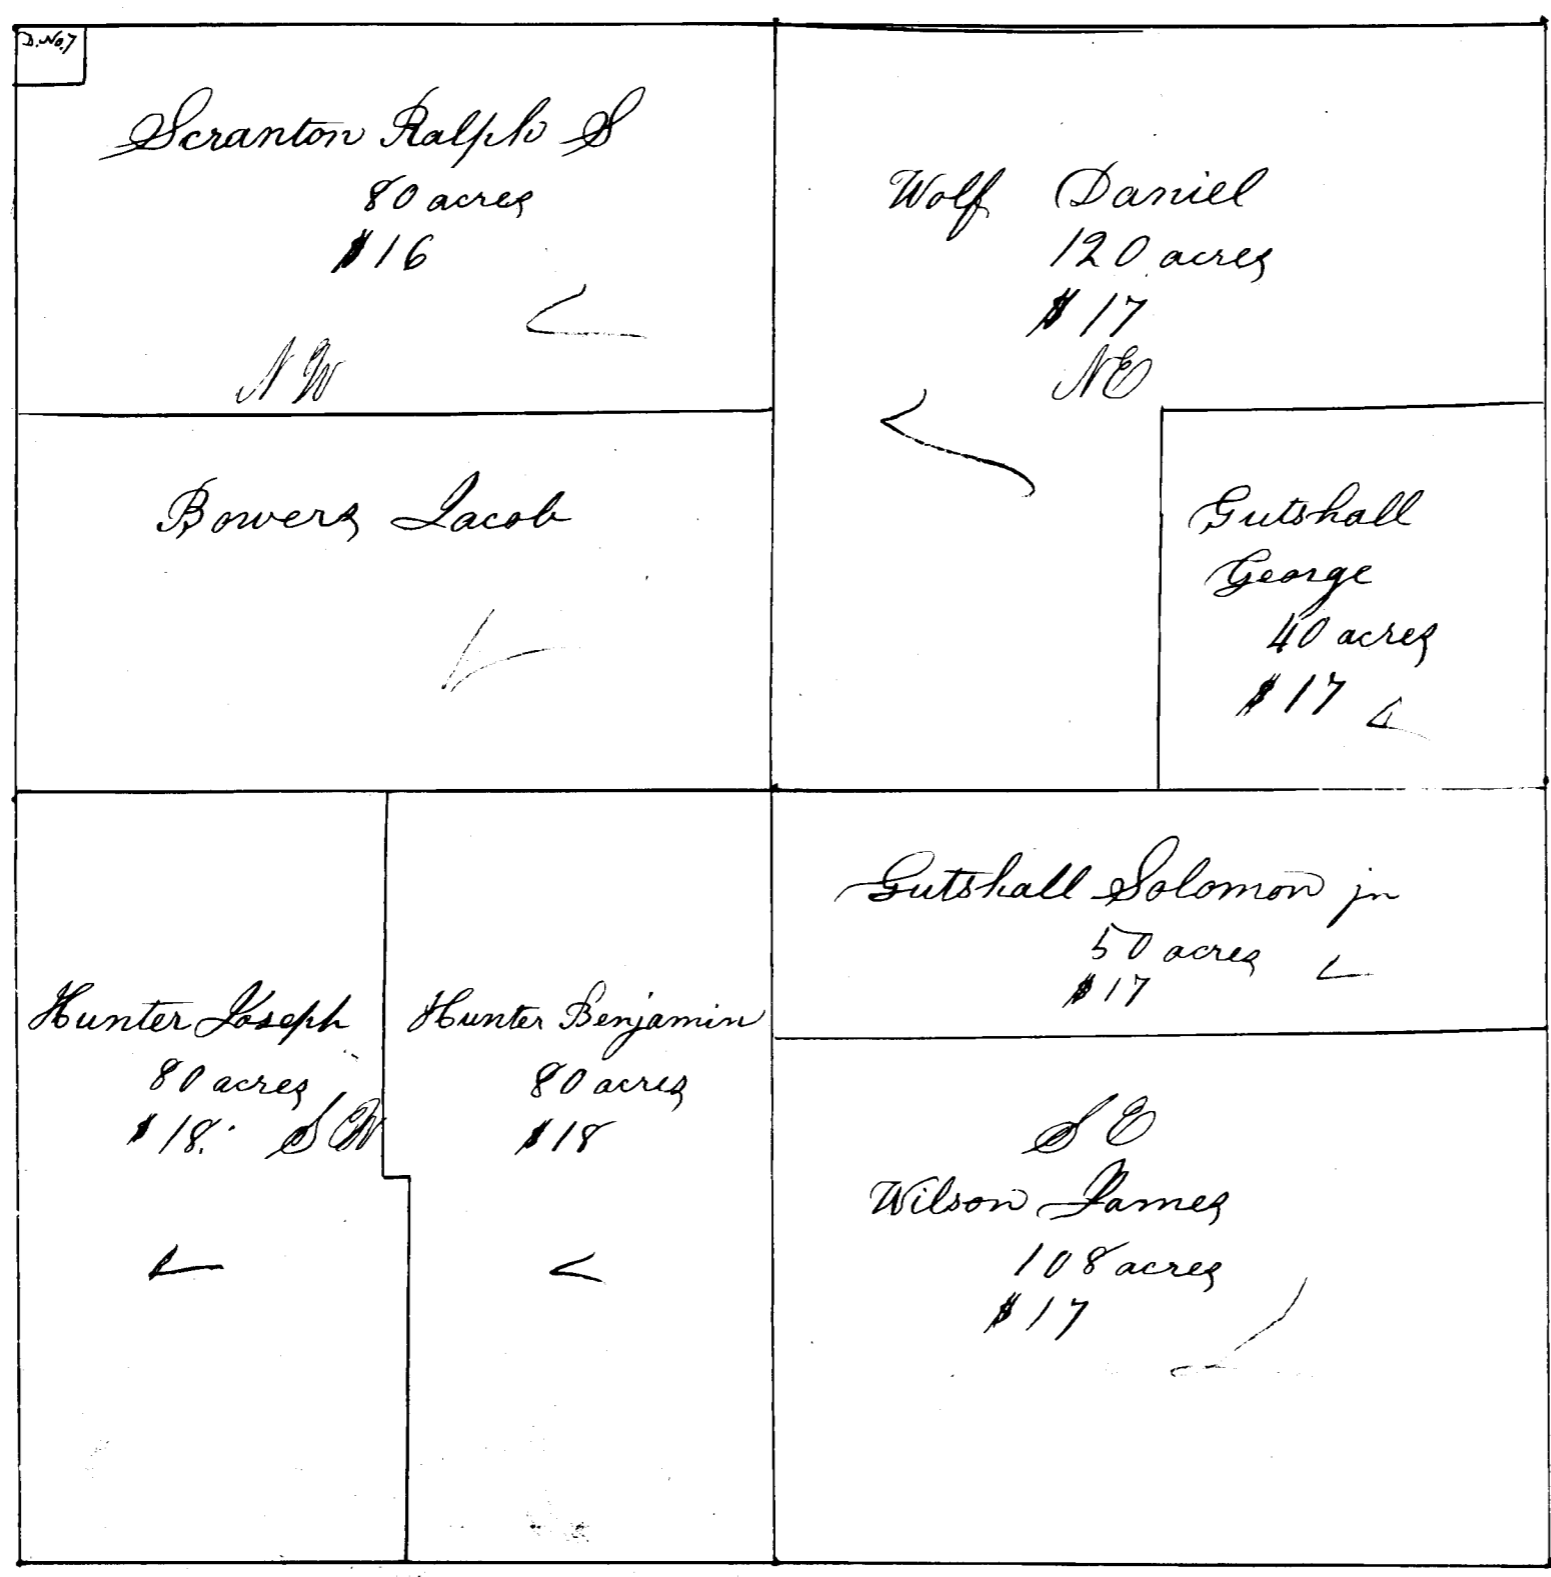 D. No. 7
Scranton Ralph S
80 acres
$16
NW
Wolf Daniel
120 acres
$17
NE
Bowers Jacob
Gutshall
George
40 acres
$17
Hunter Joseph
80 acres
$18. SW
Hunter Benjamin
80 acres
$18
Gutshall Solomon jr
50 acres
$17
SE
Wilson James
108 acres
$17